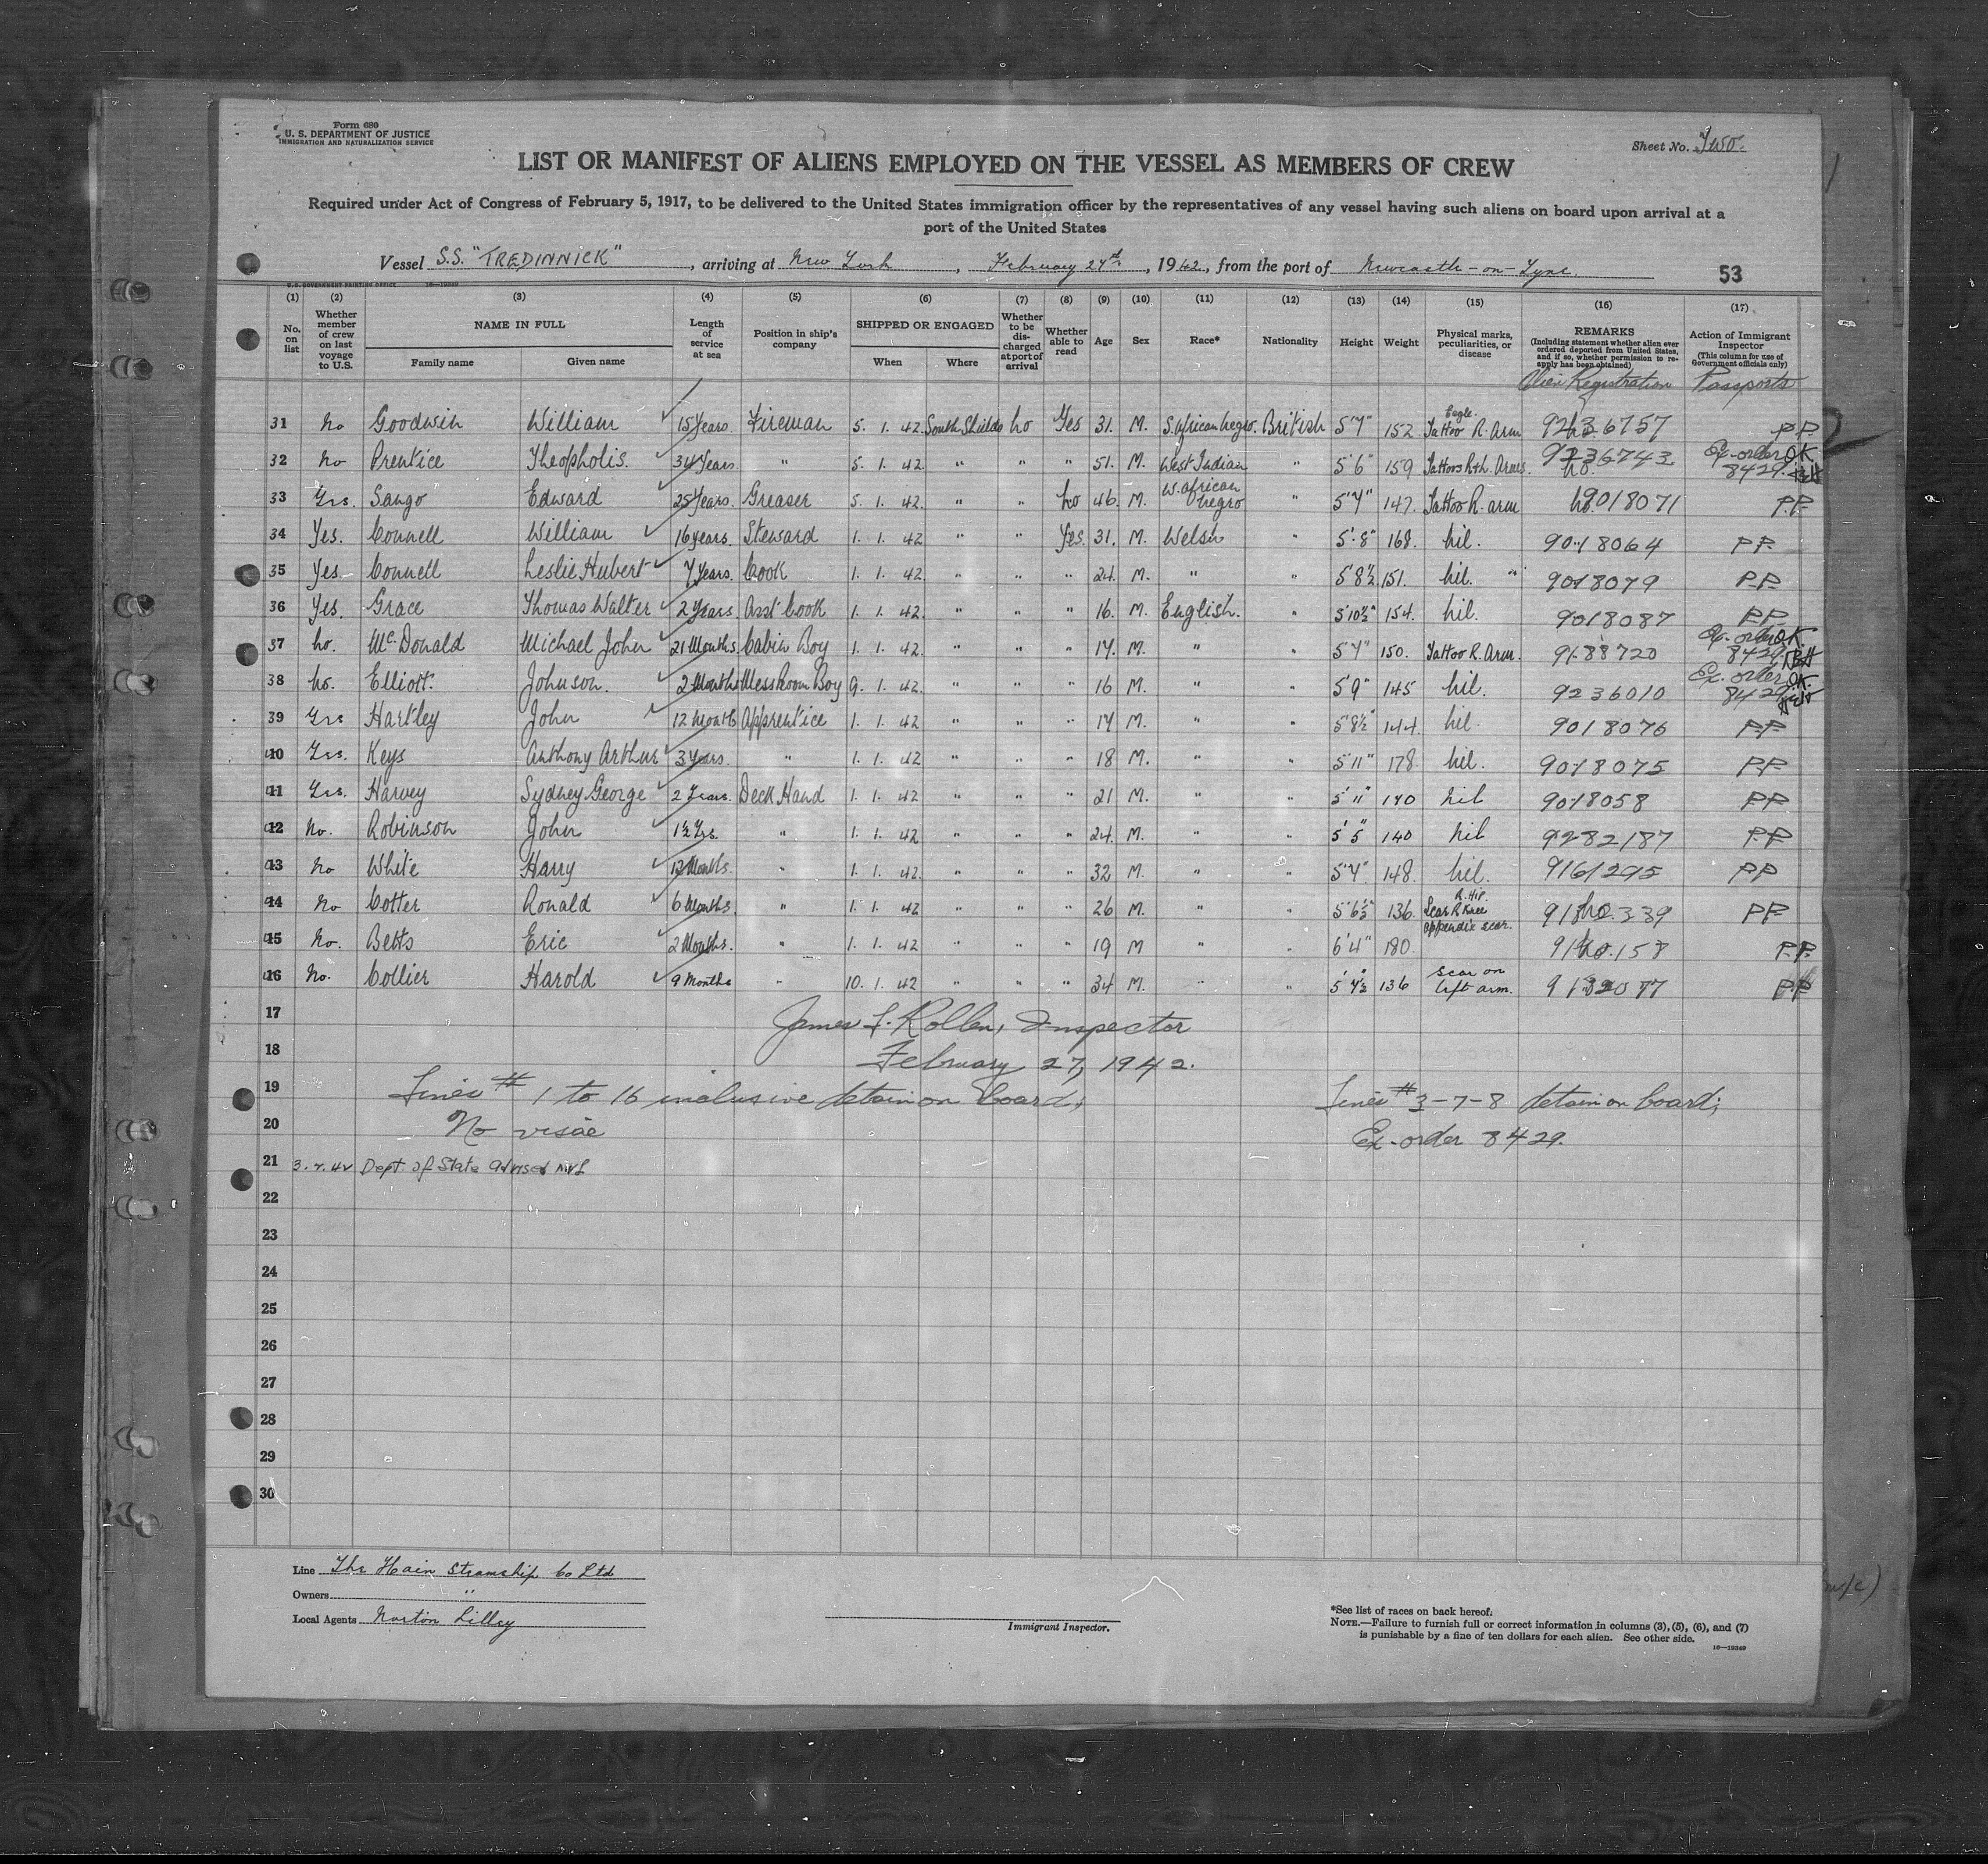 Form 680
U. S. DEPARTMENT OF JUSTICE
IMMIGRATION AND NATURALIZATION SERVICE
Sheet No. Two.
LIST OR MANIFEST OF ALIENS EMPLOYED ON THE VESSEL AS MEMBERS OF CREW
Required under Act of Congress of February 5, 1917, to be delivered to the United States immigration officer by the representatives of any vessel having such aliens on board upon arrival at a
port of the United States
Vessel S.S. "TREDINNICK", arriving at New York, February 27th, 1942, from the port of Newcastle-on-Tyne.
53
U.S. GOVERNMENT PRINTING OFFICE 16—19349
(1) (2) (3) (4) (5) (6) (7) (8) (9) (10) (11) (12) (13) (14) (15) (16) (17)
No. on list
Whether member of crew on last voyage to U.S.
NAME IN FULL
Family name Given name
Length of service at sea
Position in ship's company
SHIPPED OR ENGAGED
When Where
Whether to be discharged at port of arrival
Whether able to read
Age
Sex
Race*
Nationality
Height
Weight
Physical marks, peculiarities, or disease
REMARKS
(Including statement whether alien ever ordered deported from United States, and if so, whether permission to reapply has been obtained)
Action of Immigrant Inspector
(This column for use of Government officials only)
Alien Registration Passports
31 No Goodwin William 15 Years. Fireman 5. 1. 42. South Shields No Yes 31. M. S. African Negro. British 5'7" 152 Eagle. Tattoo R. Arm P.P.
32 No Prentice Theopholis. 34 Years. " 5. 1. 42. " " " 51. M. West Indian " 5'6" 159 Tattoos R+L. Arms. 9236743 Ex-order OK 8429.
33 Yes. Sango Edward 25 Years. Greaser 5. 1. 42. " " No 46. M. W. African Negro " 5'7" 147. Tattoo R. arm 9018071 P.P.
34 Yes. Connell William 16 years. Steward 1. 1. 42 " " Yes. 31. M. Welsh " 5'8" 168. Nil. 9018064 P.P.
35 Yes Connell Leslie Hubert 7 Years. Cook 1. 1. 42. " " " 24. M. " " 5'8½ 151. Nil. " 9018079 P.P.
36 Yes. Grace Thomas Walter 2 Years. Asst Cook 1. 1. 42. " " " 16. M. English. " 5'10½" 154. Nil. 9018087 P.P.
37 No. McDonald Michael John 21 Months. Cabin Boy 1. 1. 42. " " " 17. M. " " 5'7" 150. Tattoo R. Arm. 9188720 Ex-order OK 8429.
38 No. Elliott. Johnson. 2 Months Mess Room Boy 9. 1. 42. " " " 16 M. " " 5'9" 145 Nil. 9236010 Ex. order OK. 8429
39 Yes Hartley John 12 Month Apprentice 1. 1. 42 " " " 17 M. " " 5'8½" 144. Nil 9018076 P.P.
40 Yes. Keys Anthony Arthur 3 Years. " 1. 1. 42 " " " 18 M. " " 5'11" 178. Nil. 9018075 P.P.
41 Yes. Harvey Sydney George 2 Years. Deck Hand 1. 1. 42 " " " 21 M. " " 5'11" 170 Nil 9018058 P.P.
42 No. Robinson John 1½ Yrs. " 1. 1. 42 " " " 24. M. " " 5'5" 140 Nil 9282187 P.P.
43 No White Harry 12 Months. " 1. 1. 42. " " " 32 M. " " 5'7". 148. Nil. 9161295 P.P.
44 No Cotter Ronald 6 Months. " 1. 1. 42 " " " 26 M. " " 5'6½" 136. R. Hip. Scar R Knee appendix scar. P.P.
45 No. Betts Eric 2 Months. " 1. 1. 42 " " " 19 M " " 6'4" 180. P.P.
46 No. Collier Harold 9 Months " 10. 1. 42 " " " 34 M. " " 5'7½ 136 Scar on left arm. P.P.
17 James F. Rollen, Inspector
18 February 27, 1942.
19 Lines # 1 to 16 inclusive detain on board, Lines # 3-7-8 detain on board;
20 No visae Ex-order 8429.
21 3.7.42 Dept of State advised
22
23
24
25
26
27
28
29
30
Line The Hain Steamship Co Ltd
Owners "
Local Agents Norton Lilley
Immigrant Inspector.
*See list of races on back hereof.
NOTE.—Failure to furnish full or correct information in columns (3), (5), (6), and (7)
is punishable by a fine of ten dollars for each alien. See other side.
16—19349